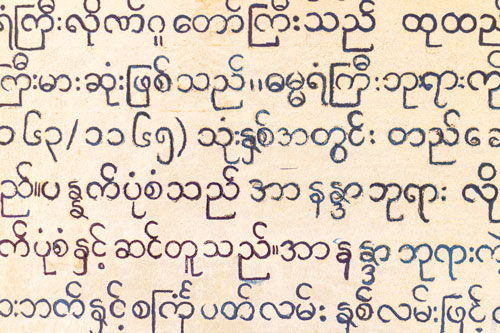 ရံကြီးလိုဏ်ဂူတော်ကြီးသည် ထုထည်
ကြီးမားဆုံးဖြစ်သည်။ဓမ္မရံကြီးဘုရားကို
၁၆၃/၁၁၆၅) သုံးနှစ်အတွင်း တည်ဆော
ည်။ပန္နက်ပုံစံသည် အာနန္ဒာဘုရား လို
က်ပုံစံနှင့်ဆင်တူသည်။အာနန္ဒာဘုရားကဲ
းဘက်နှင့်စင်္ကြံ ပတ်လမ်း နှစ်လမ်းဖြင့်